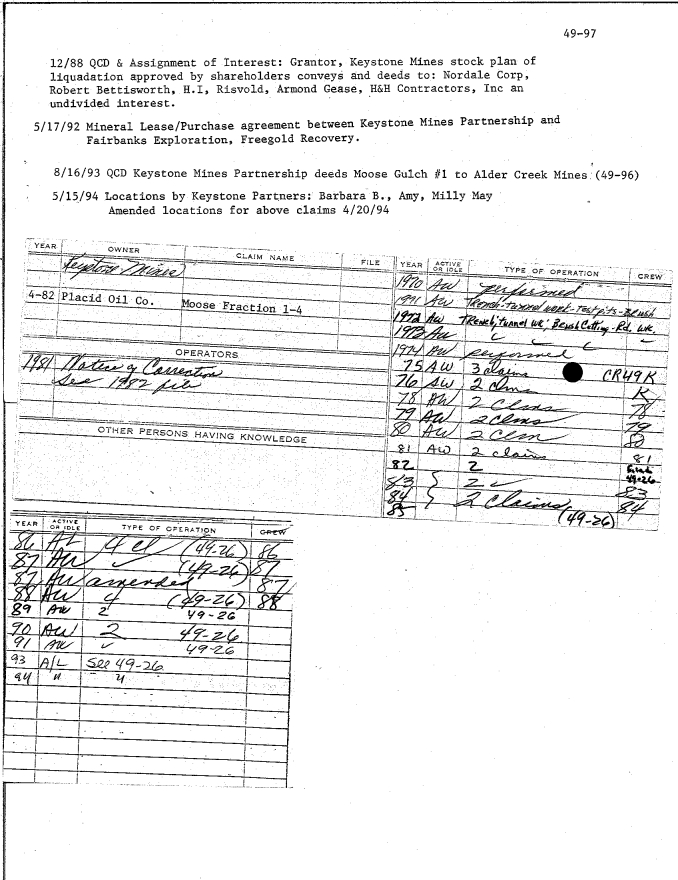 49-97
12/88 QCD & Assignment of Interest: Grantor, Keystone Mines stock plan of
liquadation approved by shareholders conveys and deeds to: Nordale Corp,
Robert Bettisworth, H.I, Risvold, Armond Gease, H&H Contractors, Inc an
undivided interest.
5/17/92 Mineral Lease/Purchase agreement between Keystone Mines Partnership and
Fairbanks Exploration, Freegold Recovery.
8/16/93 QCD Keystone Mines Partnership deeds Moose Gulch #1 to Alder Creek Mines (49-96)
5/15/94 Locations by Keystone Partners: Barbara B., Amy, Milly May
Amended locations for above claims 4/20/94
YEAR OWNER CLAIM NAME FILE
Keystone Mines
4-82 Placid Oil Co. Moose Fraction 1-4
OPERATORS
1981 Notice of Correction
See 1982 file
OTHER PERSONS HAVING KNOWLEDGE
YEAR ACTIVE OR IDLE TYPE OF OPERATION CREW
1970 AW performed
1971 AW Trench-tunnel work-Test pits-Brush
1972 AW Trench, tunnel wk, Brush Cutting-Rd. wk.
1973 AW " " " "
1974 AW performed
75 AW 3 claims CR49K
76 AW 2 clms K
78 AW 2 Clms 78
79 AW 2 Clms 79
80 AW 2 Clm 80
81 AW 2 claims 81
82 2 49-26
83 } 2 ✓ 83
84 } 2 Claims 84
85 (49-26)
YEAR ACTIVE OR IDLE TYPE OF OPERATION CREW
86 AL 4 cl (49-26) 86
87 AW ✓ (49-26) 87
87 AW amended 87
88 AW 4 (49-26) 88
89 AW 2 49-26
90 AW 2 49-26
91 AW ✓ 49-26
93 A/L See 49-26
94 " "